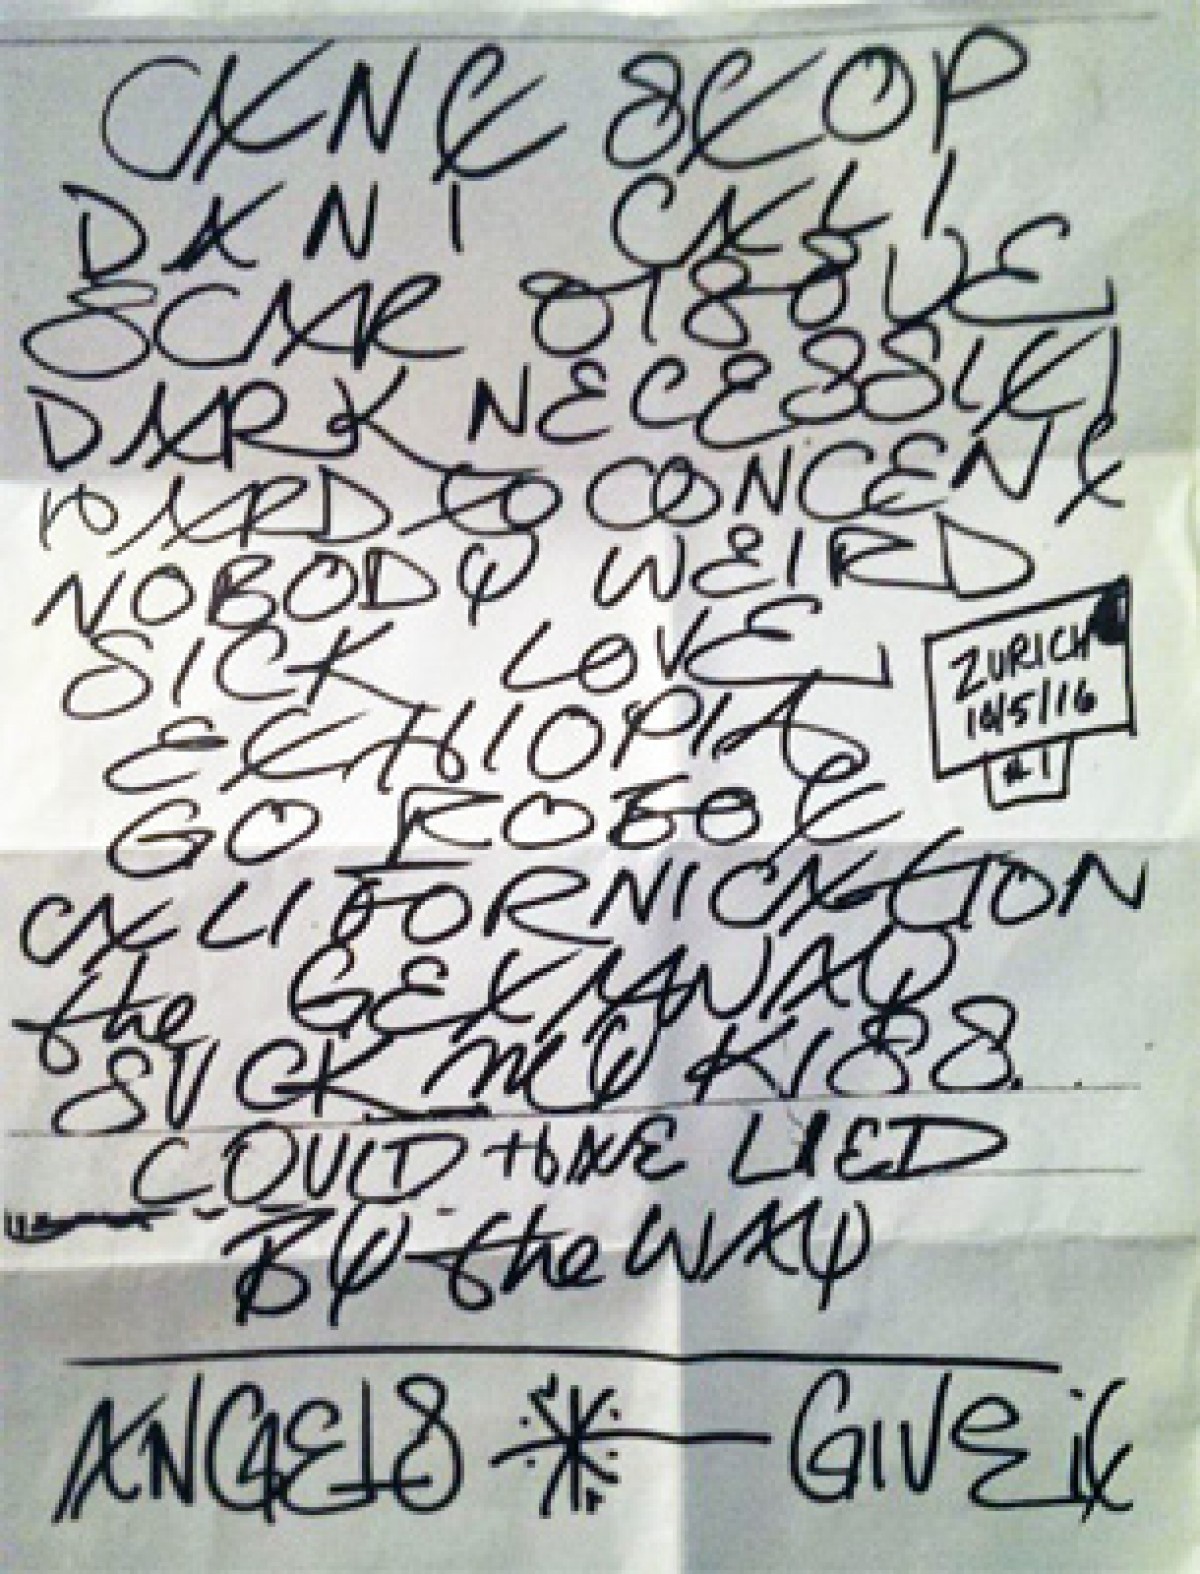 CAN'T STOP
DANI CALI
SCAR OTSOVE
DARK NECESSITI
HARD TO CONCENT
NOBODY WEIRD
SICK LOVE
ETHIOPIA
GO ROBOT
CALIFORNICATION
the GETAWAY
SUCK MY KISS
COULD HAVE LIED
BY the WAY
ANGELS * GIVE it
ZURICH
10/5/16
#1